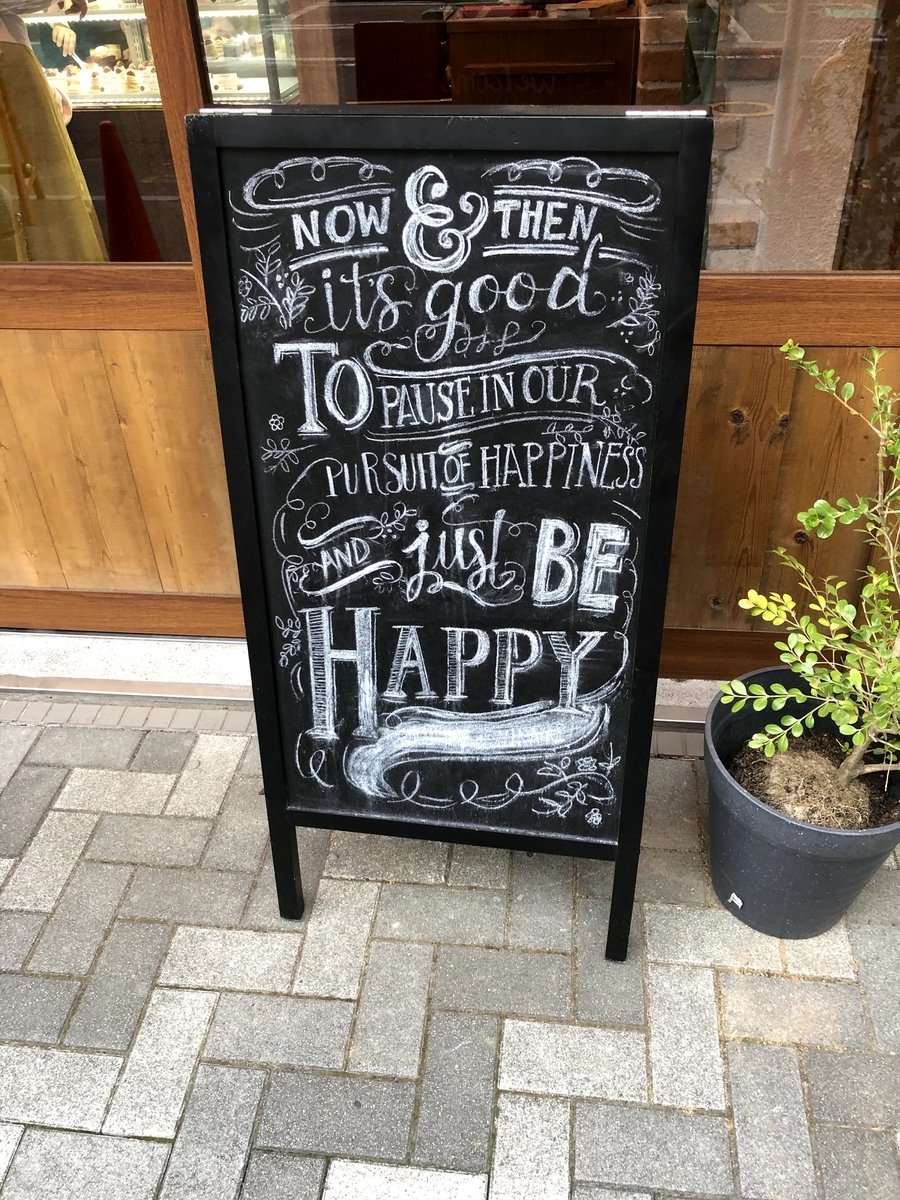 NOW & THEN
it's good
TO PAUSE IN OUR
PURSUIT OF HAPPINESS
AND just BE
HAPPY